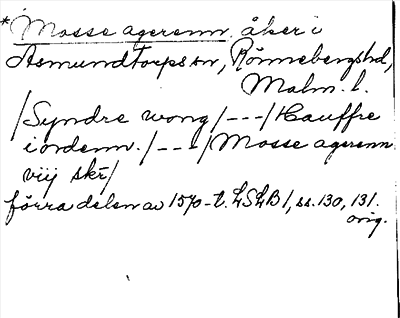 *Mosse agerenn. åker i
Asmundtorps sn, Rönnebergs hd,
Malm. l.
/Syndre wong/---/Hauffre
iordenn./---/Mosse agerenn
viij skr/
förra delen av 1570-t. LSLB1, ss. 130, 131.
orig.